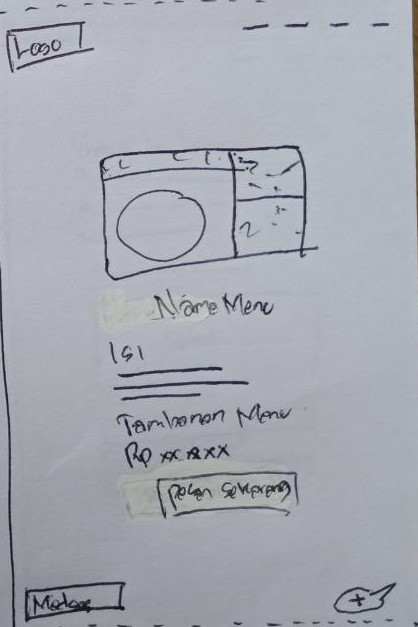 Logo
Name Menu
Isi
Tambahan Menu
Rp xx xxx
pesan sekarang